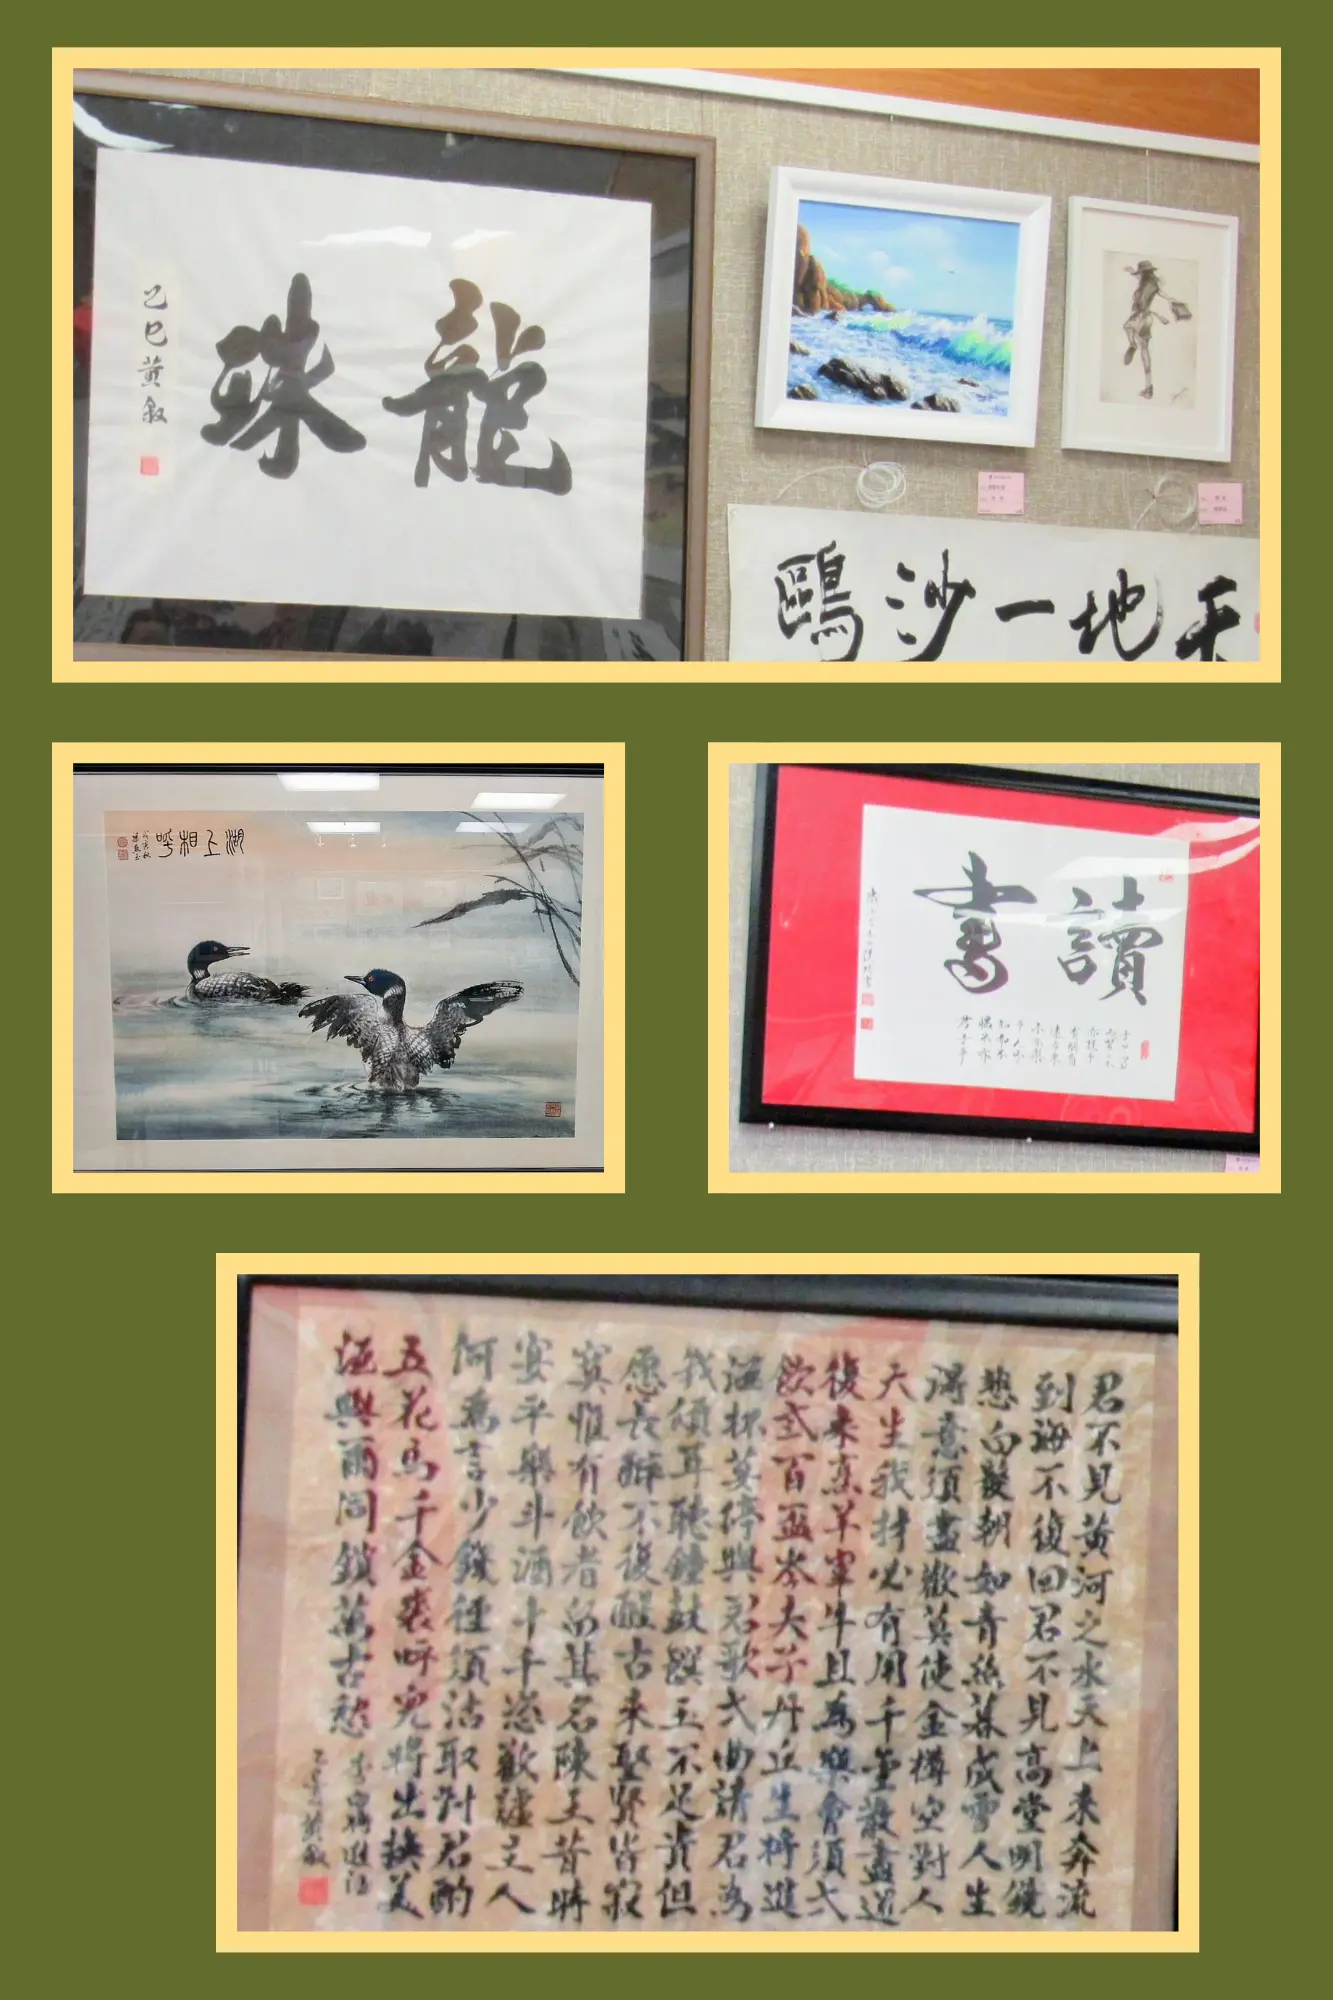 龍珠
己巳黃叙
天地一沙鷗
湖上相呼
讀書
君不見黃河之水天上来奔流
到海不復回君不見高堂明鏡
愁白髮朝如青絲暮成雪人生
得意須盡歡莫使金樽空對人
天生我材必有用千金散盡還
復来烹羊宰牛且為樂會須弌
飲弎百盃岑夫子丹丘生將進
酒杯莫停與君歌弌曲請君為
我傾耳聽鐘鼓饌玉不足貴但
愿長醉不復醒古来聖賢皆寂
寞惟有飲者留其名陳王昔時
宴平樂斗酒十千恣歡謔主人
何為言少錢徑須沽取對君酌
五花馬千金裘呼兒將出換美
酒與爾同銷萬古愁
李白將進酒